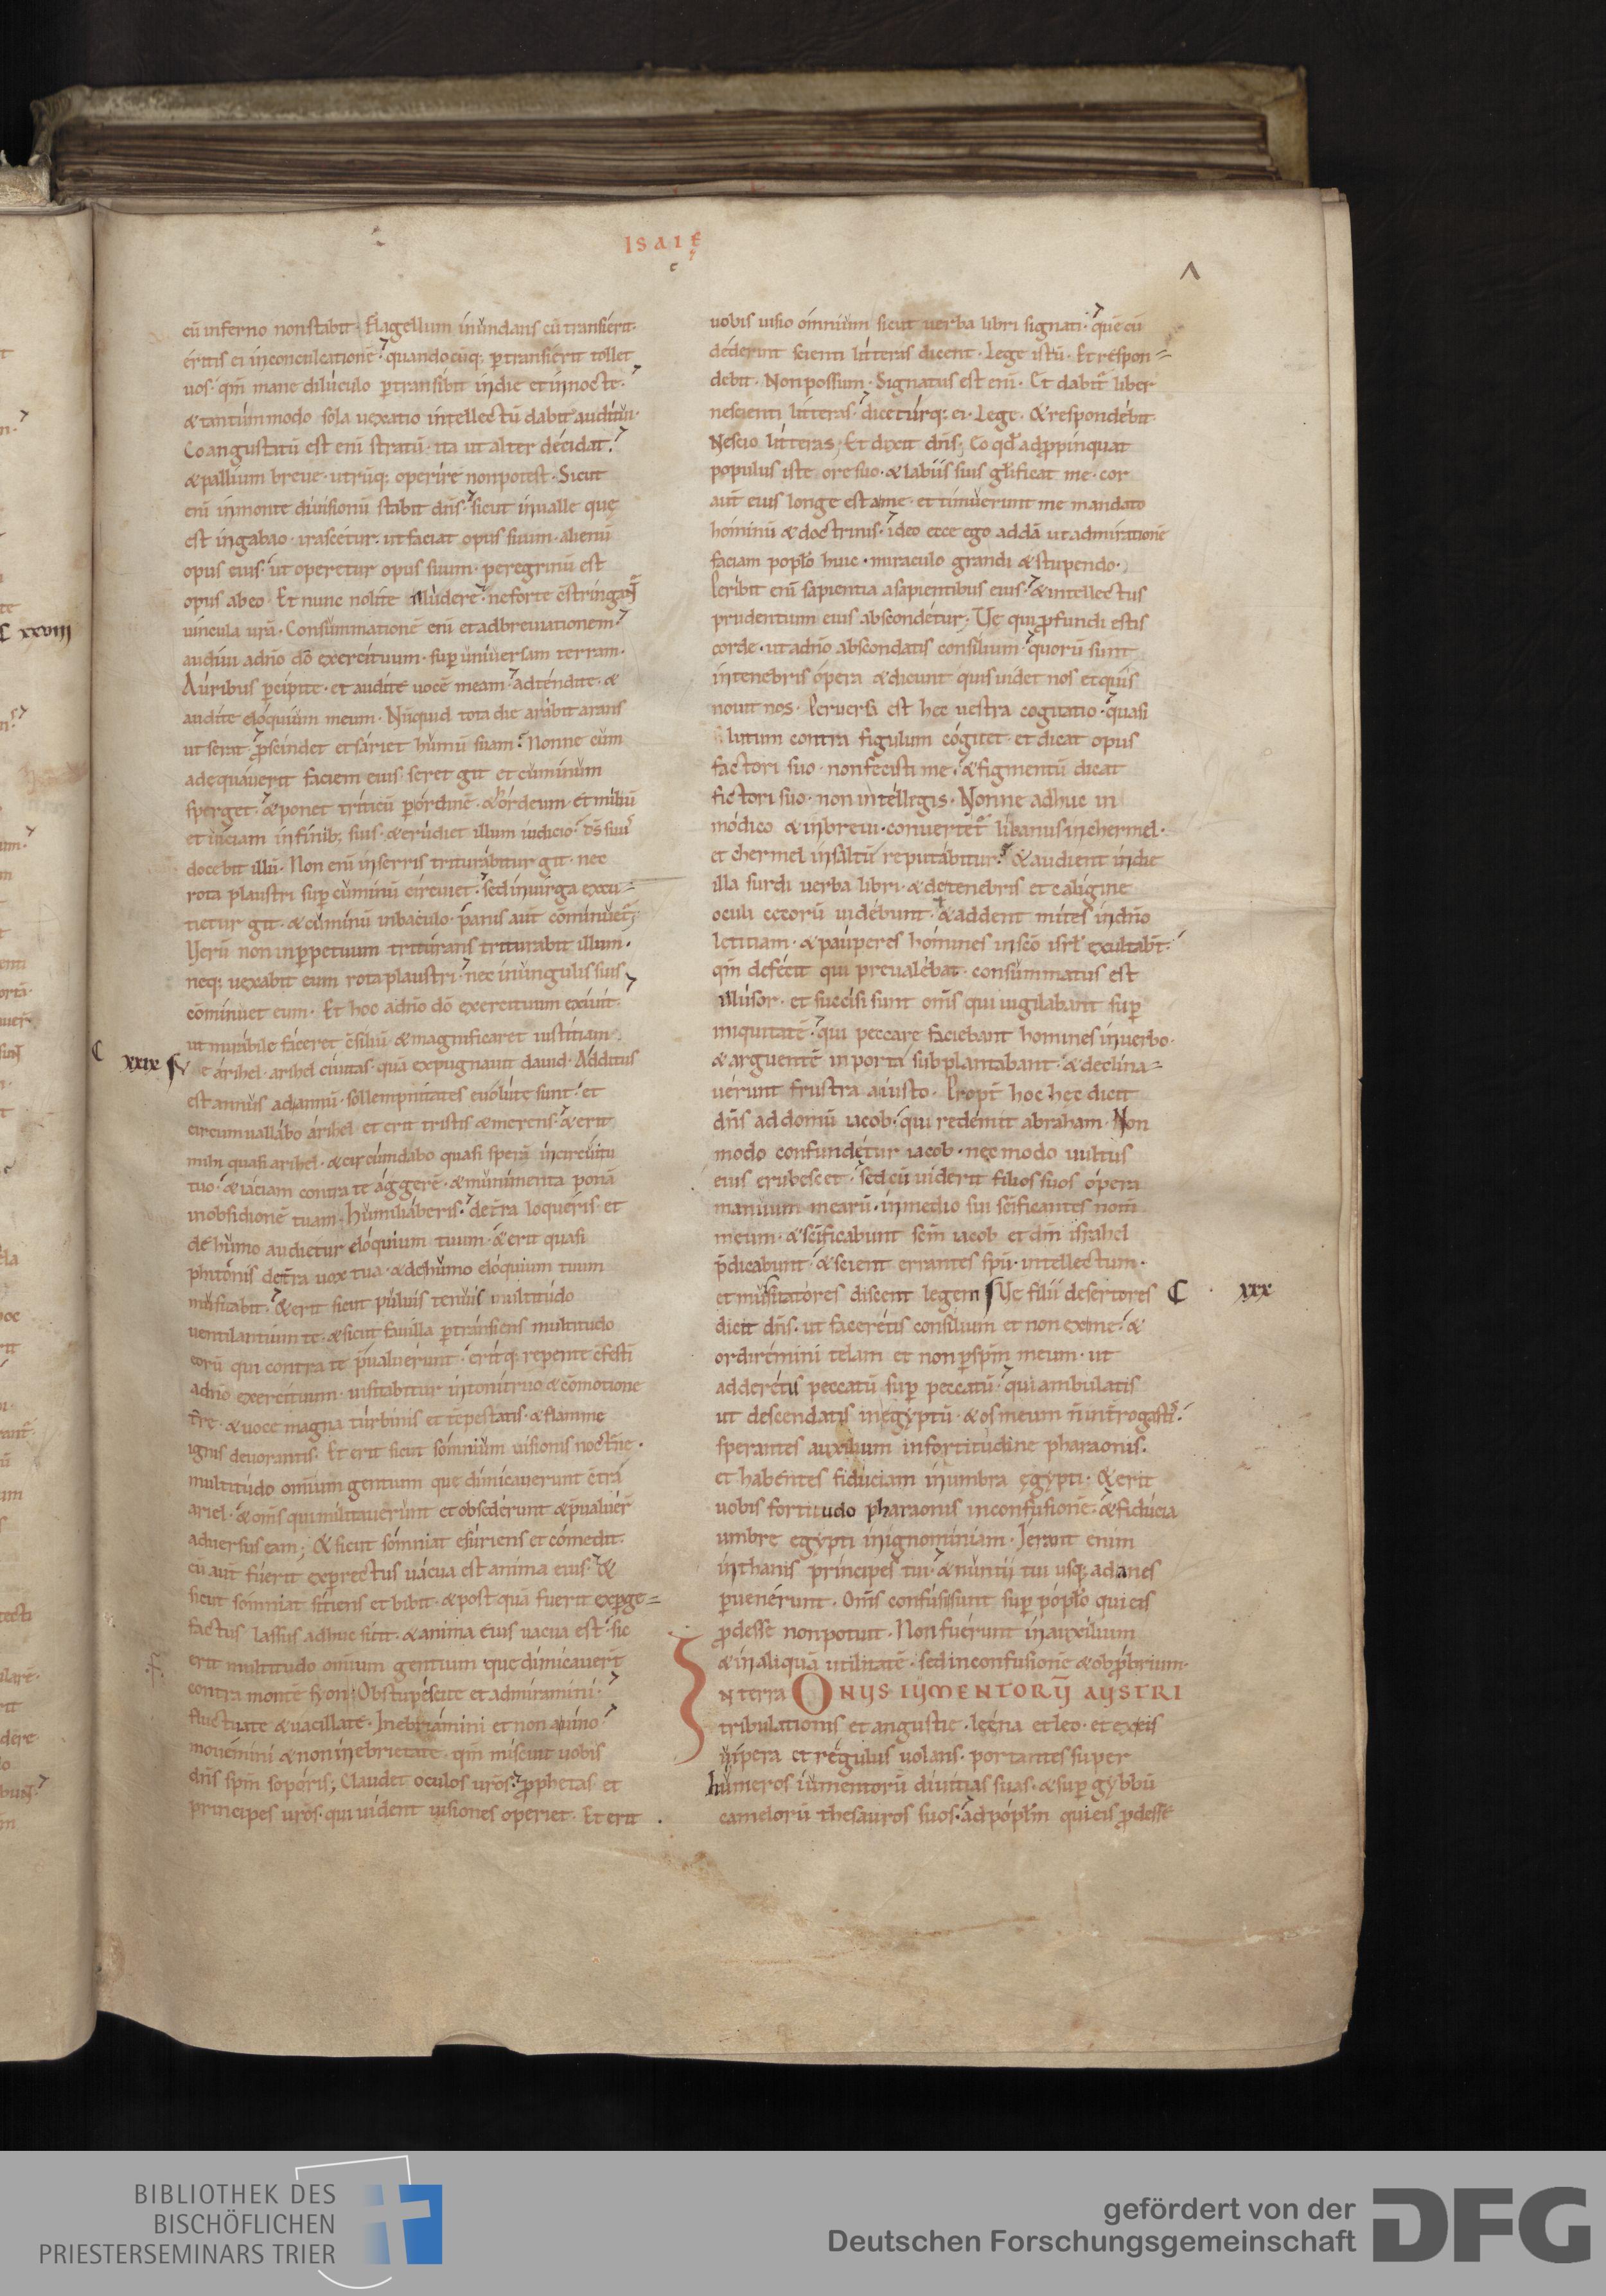 ISAIE
cū inferno non stabit. flagellum inundans cū transierit.
eritis ei in conculcationē. quandocūq; ꝑtransierit tollet
uos. qm̄ mane diluculo ꝑtransibit in die et in nocte.
& tantummodo sola uexatio intellectū dabit auditui.
Coangustatū est enī stratū. ita ut alter decidat.
& pallium breue. utrūq; operire non potest. Sicut
enī in monte diuisionū stabit dn̄s. sicut in ualle quę
est in gabao. irascetur. ut faciat opus suum. alienū
opus eius. ut operetur opus suum. peregrinū est
opus ab eo. Et nunc nolite illudere. ne forte c̄stringant̄
uincula ur̄a. Consummationē enī et adbreuiationem.
audiui a dn̄o dō exercituum. suꝑ uniuersam terram.
Auribus ꝑcipite. et audite uocē meam. adtendite. &
audite eloquium meum. Nūquid tota die arabit arans
ut serat. ꝓscindet et sariet humū suam. Nonne cum
adequauerit faciem eius. seret git et cuminum
sperget. & ponet triticū ꝑ ordinē. & hordeum. et miliū
et uiciam in finib; suis. & erudiet illum iudicio. ds̄ suus
docebit illū. Non enī in serris triturabitur git. nec
rota plaustri suꝑ cuminū circuiet. sed in uirga excu=
tietur git. & cuminū in baculo. panis aut̄ cōminuet̄;
Verū non in ꝑpetuum triturans triturabit illum.
neq; uexabit eum rota plaustri. nec in ungulis suis
cōminuet eum. Et hoc a dn̄o dō exercituum exiuit.
ut mirabile faceret c̄siliū. & magnificaret iustitiam.
C xxix Ve arihel. arihel ciuitas. quā expugnauit dauid. Additus
est annus ad annū. sollempnitates euolute sunt. et
circumuallabo arihel. et erit tristis & merens. & erit
mihi quasi arihel. & circundabo quasi sperā in circuitu
tuo. & iaciam contra te aggerē. & munimenta ponā
in obsidionē tuam. Humiliaberis. de tr̄a loqueris. et
de humo audietur eloquium tuum. & erit quasi
phitonis de tr̄a uox tua. & de humo eloquium tuum
musitabit. & erit sicut puluis tenuis multitudo
uentilantium te. & sicut fauilla ꝑtransiens multitudo
eorū qui contra te p̄ualuerunt. eritq; repente c̄festī
a dn̄o exercituum. uisitabitur in tonitruo & cōmotione
tr̄re. & uoce magna turbinis et tēpestatis. & flamme
ignis deuorantis. Et erit sicut somnium uisionis noct̄ne.
multitudo omnium gentium que dimicauerunt c̄tra
ariel. & om̄s qui militauerunt et obsederunt & p̄ualuer̄
aduersus eam; & sicut somniat esuriens et comedit.
cū aut̄ fuerit exꝑrectus uacua est anima eius. &
sicut somniat sitiens et bibit. & postquā fuerit exꝑge=
factus lassus adhuc sitit. & anima eius uacua est. sic
erit multitudo omīum gentium que dimicauer̄t
contra montē syon; Obstupescite et admiramini.
fluctuate & uacillate. Inebriamini et non a uino.
mouemini & non in ebrietate. qm̄ miscuit uobis
dn̄s spm̄ soporis; Claudet oculos ur̄os. ꝓphetas et
principes ur̄os. qui uident uisiones operiet. Et erit
uobis uisio omnium sicut uerba libri signati. que cū
dederint scienti litteras dicent. Lege istū. Et respon=
debit. Non possum. Signatus est enī. Et dabit̄ liber
nescienti litteras. diceturq; ei. Lege. & respondebit.
Nescio litteras; Et dixit dn̄s; Eo qd̄ adꝓpinquat
populus iste ore suo. & labiis suis glīficat me. cor
aut̄ eius longe est a me. et timuerunt me mandato
hominū & doctrinis. ideo ecce ego addā ut admirationē
faciam poplo huic. miraculo grandi & stupendo.
Peribit enī sapientia a sapientibus eius. & intellectus
prudentium eius abscondetur; Ve qui ꝓfundi estis
corde. ut a dn̄o abscondatis consilium. quorū sunt
in tenebris opera & dicunt quis uidet nos et quis
nouit nos. Peruersa est hec uestra cogitatio. quasi
si lutum contra figulum cogitet. et dicat opus
factori suo. non fecisti me. & figmentū dicat
fictori suo. non intellegis. Nonne adhuc in
modico & in breui. conuertet̄ libanus in chermel.
et chermel in saltū reputabitur. & audient in die
illa surdi uerba libri. & de tenebris et caligine
oculi cecorū uidebunt. & addent mites in dn̄o
letitiam. & pauperes homines in scō isrl̄ exultabt̄.
qm̄ defecit qui preualebat. consummatus est
illusor. et succisi sunt om̄s qui uigilabant suꝑ
iniquitatē. qui peccare faciebant homines in uerbo.
& arguentē in porta subplantabant. & declina=
uerunt frustra a iusto. Propt̄ hoc hec dicit
dn̄s ad domū iacob. qui redemit abraham. Non
modo confundetur iacob. nec modo uultus
eius erubescet. sed cū uiderit filios suos opera
manuum mearū. in medio sui sc̄ificantes nom̄
meum. & sc̄ificabunt scm̄ iacob et dm̄ israhel
p̄dicabunt. & scient errantes spū. intellectum.
et musitatores discent legem Ve filii desertores C xxx
dicit dn̄s. ut faceretis consilium et non ex me. &
ordiremini telam et non ꝑ spm̄ meum. ut
adderetis peccatū suꝑ peccatū. qui ambulatis
ut descendatis in egyptū. & os meum n̄ int̄rogastis.
sperantes auxilium in fortitudine pharaonis.
et habentes fiduciam in umbra egypti. & erit
uobis fortitudo pharaonis in confusionē. & fiducia
umbre egypti in ignominiam. Ierant enim
in thanis principes tui. & nuntii tui usq; ad anes
ꝑuenerunt. Om̄s confusi sunt suꝑ poplo qui eis
ꝓdesse non potuit. Non fuerunt in auxilium
& in aliquā utilitatē. sed in confusionē & obꝓbrium.
IN terra ONUS IUMENTORŪ AUSTRI
tribulationis et angustie. leena et leo. et ex eis
uipera et regulus uolans. portantes super
humeros iumentorū diuitias suas. & suꝑ gybbū
camelorū thesauros suos. ad poplm̄ qui eis ꝓdesse
C xxviii
BIBLIOTHEK DES
BISCHÖFLICHEN
PRIESTERSEMINARS TRIER
gefördert von der
Deutschen Forschungsgemeinschaft
DFG